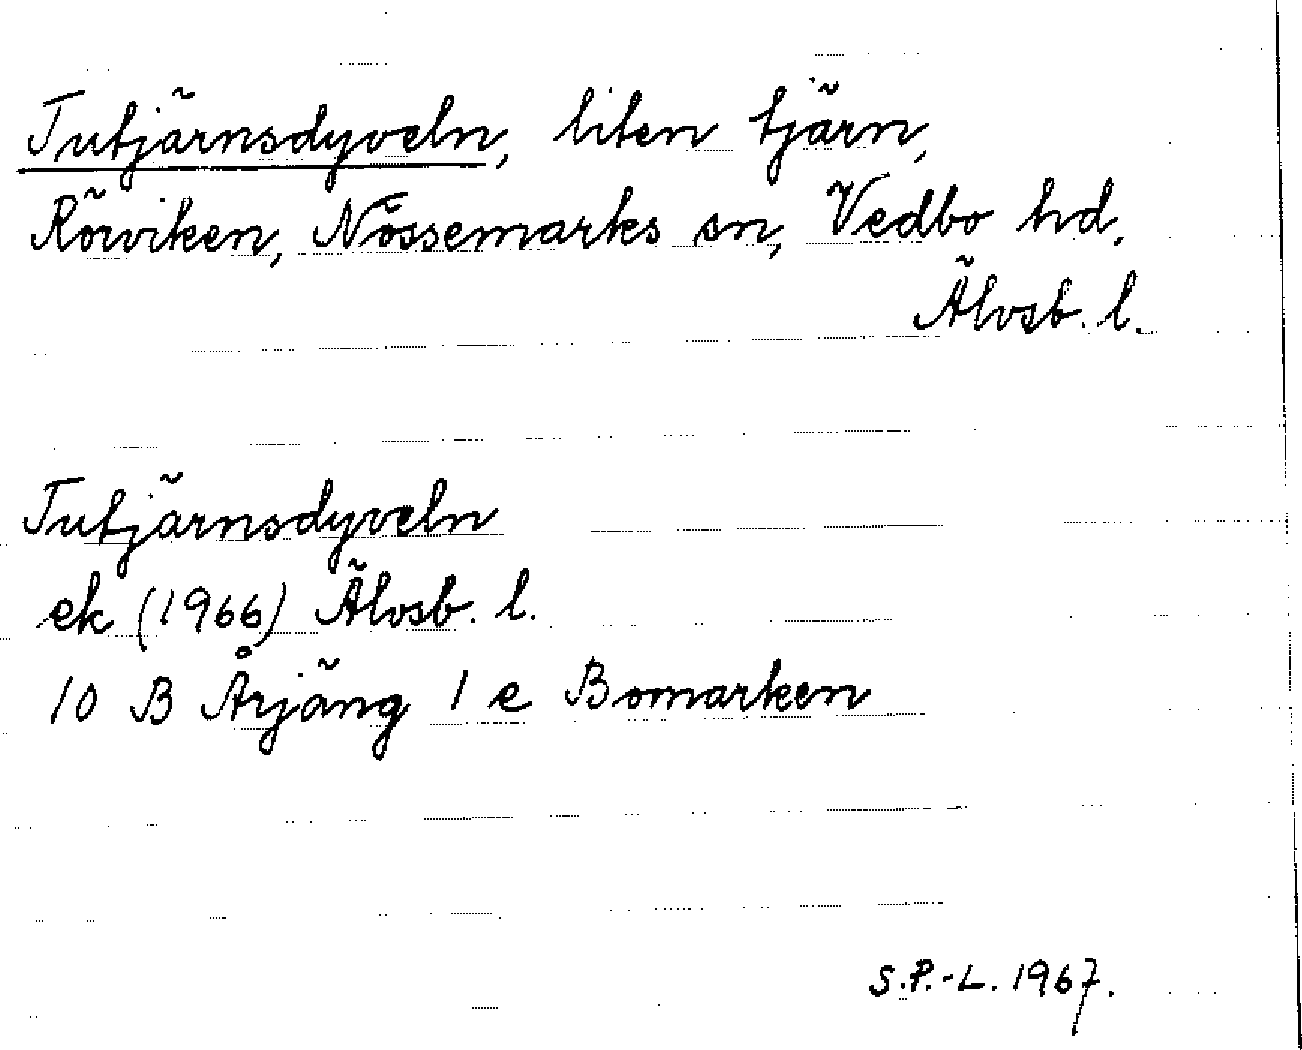 Tutjärnsdyveln, liten tjärn,
Rörviken, Nössemarks sn, Vedbo hd,
Älvsb. l.
Tutjärnsdyveln
ek (1966) Älvsb. l.
10 B Årjäng 1 e Bomarken
S.P.-L. 1967.